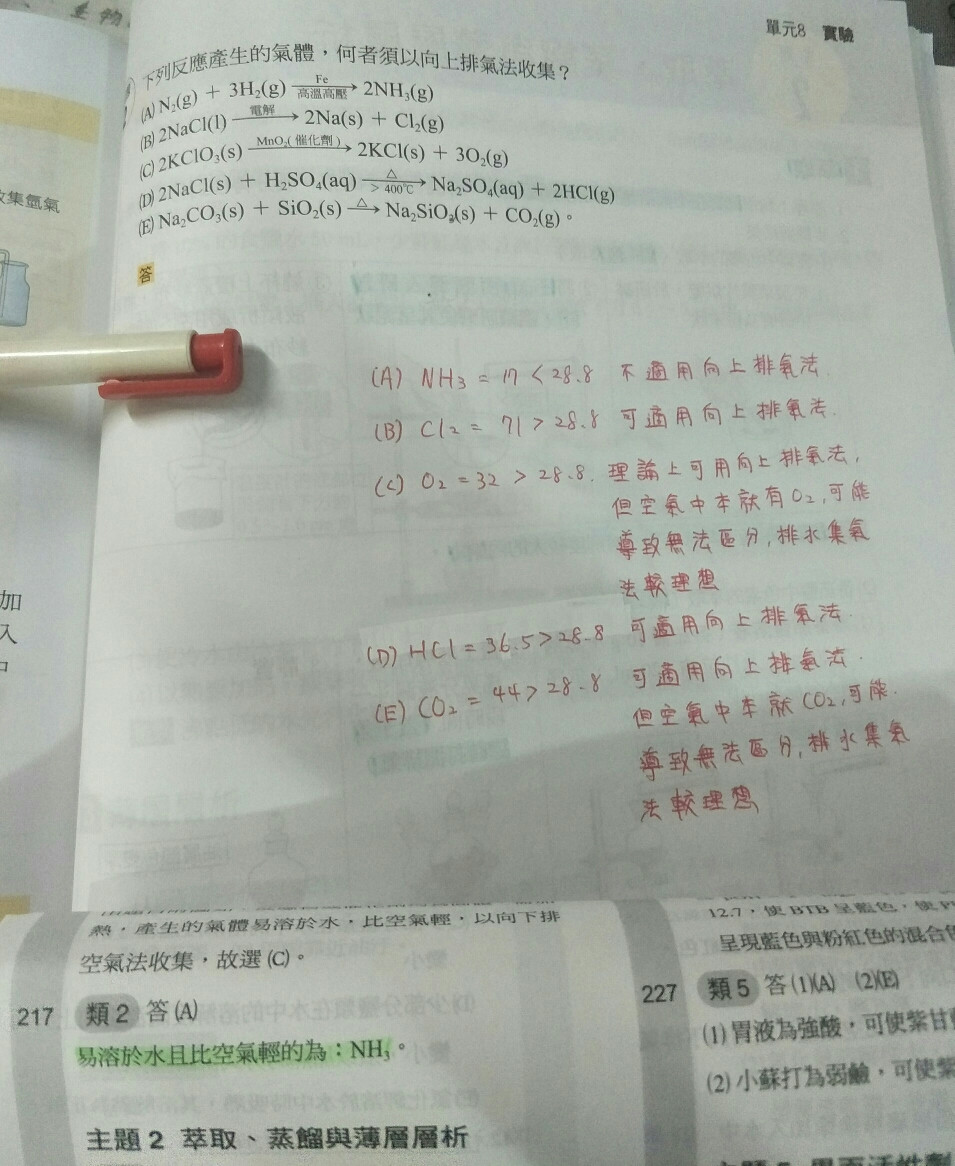 生物
單元8 實驗
下列反應產生的氣體，何者須以向上排氣法收集？
(A) N₂(g) + 3H₂(g) Fe 高溫高壓 → 2NH₃(g)
(B) 2NaCl(l) 電解 → 2Na(s) + Cl₂(g)
(C) 2KClO₃(s) MnO₂(催化劑) → 2KCl(s) + 3O₂(g)
(D) 2NaCl(s) + H₂SO₄(aq) △ > 400℃ → Na₂SO₄(aq) + 2HCl(g)
(E) Na₂CO₃(s) + SiO₂(s) △ → Na₂SiO₃(s) + CO₂(g)。
收集氫氣
答
(A) NH₃ = 17 < 28.8 不適用向上排氣法.
(B) Cl₂ = 71 > 28.8 可適用向上排氣法.
(C) O₂ = 32 > 28.8. 理論上可用向上排氣法,
但空氣中本就有O₂,可能
導致無法區分,排水集氣
法較理想
(D) HCl = 36.5 > 28.8 可適用向上排氣法.
(E) CO₂ = 44 > 28.8 可適用向上排氣法.
但空氣中本就CO₂,可能.
導致無法區分,排水集氣
法較理想
加
入
熱，產生的氣體易溶於水，比空氣輕，以向下排
空氣法收集，故選(C)。
217 類2 答(A)
易溶於水且比空氣輕的為：NH₃。
主題 2 萃取、蒸餾與薄層層析
12.7，使BTB呈藍色，使
呈現藍色與粉紅色的混合色
227 類5 答(1)(A) (2)(E)
(1) 胃液為強酸，可使紫甘
(2) 小蘇打為弱鹼，可使紫